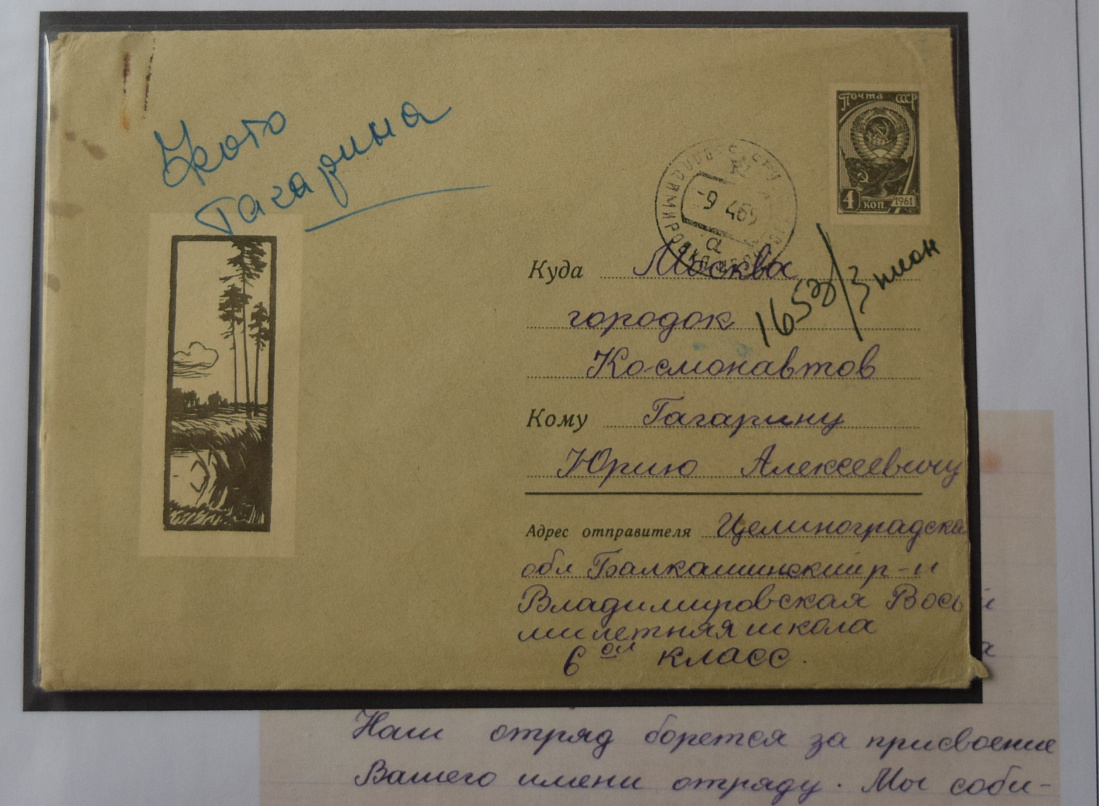 Фото
Гагарина
Почта СССР
4 коп. 1961
-9 4 65
Куда Москва
городок
Космонавтов
1653/3 пион
Кому Гагарину
Юрию Алексеевичу
Адрес отправителя Целиноградска
обл Балкашинский р-н
Владимировская Вось
милетняя школа
6 ой класс.
Наш отряд борется за присвоение
Вашего имени отряду. Мы соби-